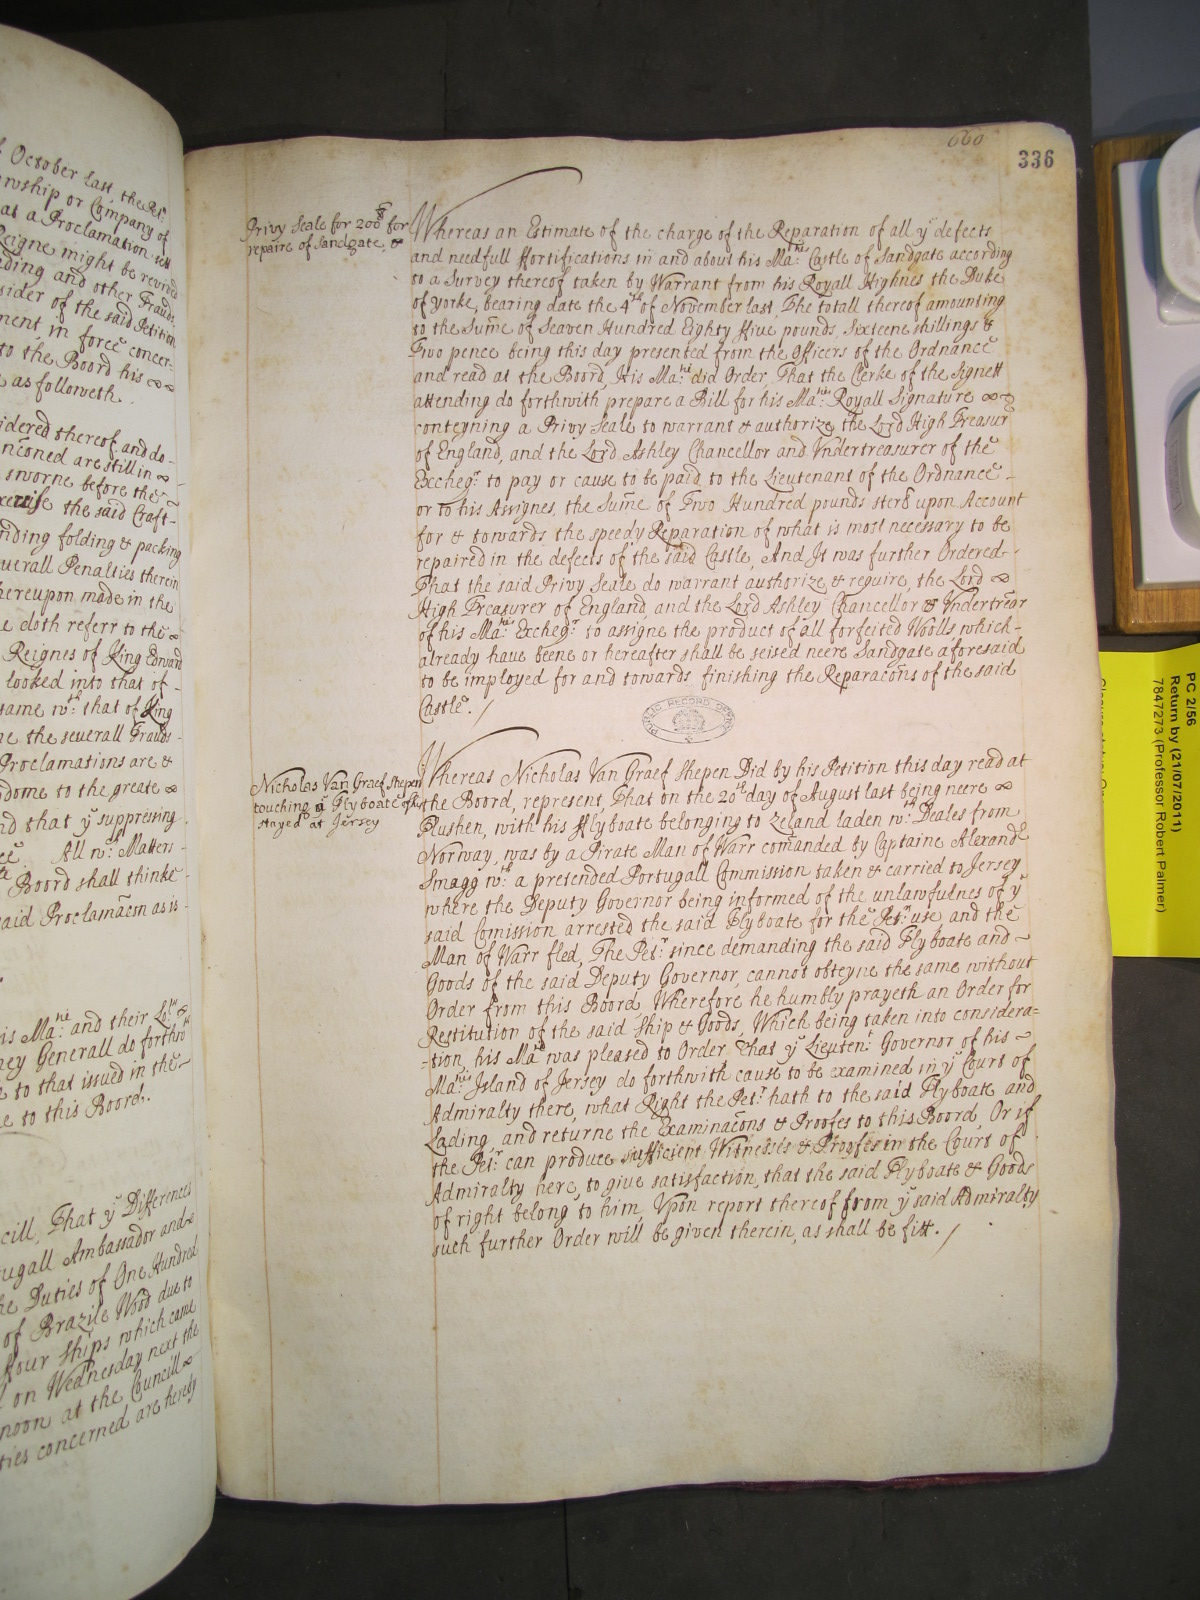 of October last, the Pet.rs
wship or Company of
at a Proclamation
Reigne might be revived
ding and other Frauds
sider of the said Petition
ment in force concer-
to the Board his
as followeth.
idered thereof, and do-
nconed are still in
sworne before the
the said Craft-
nding folding & packing
uerall Penalties therein
hereupon made in the
e doth referr to the
Reignes of King Edward
looked into that of -
same w.th that of King
ne the seuerall Frauds-
Proclamations are &
dome to the greate
nd that y.e suppressing
All w.ch Matters -
Board shall thinke -
said Proclamacon as is -
is Ma.tie and their Lo.pps
ney Generall do forthw.th
e to that issued in the -
e to this Board.
cill, That y.e Differences
tugall Ambassador and
he Duties of One Hundred
of Brazile Wood due to
ffour Ships which came
on Wednesday next the
noon at the Councill
ties concerned are hereby
660
336
Privy Seale for 200£ for
repaire of Sandgate &
Whereas an Estimate of the charge of the Reparation of all y.e defects
and needfull ffortifications in and about his Ma.ties Castle of Sandgate according
to a Survey thereof taken by Warrant from his Royall Highnes the Duke
of Yorke, bearing date the 4.th of November last, The totall thereof amounting
to the Sume of Seaven Hundred Eighty ffive pounds, Sixteene shillings &
Two pence being this day presented from the Officers of the Ordnance
and read at the Board, His Ma.tie did Order, That the Clerke of the Signett
attending do forthwith prepare a Bill for his Ma.ties Royall Signature
conteyning a Privy Seale to warrant & authorize the Lord High Treasur
of England, and the Lord Ashley Chancellor and Vndertreasurer of the
Excheq.r to pay or cause to be paid to the Lieutenant of the Ordnance -
or to his Assignes, the Sume of Two Hundred pounds ster upon Account
for & towards the speedy Reparation of what is most necessary to be
repaired in the defects of the said Castle, And It was further Ordered -
That the said Privy Seale do warrant authorize & require, the Lord
High Treasurer of England and the Lord Ashley Chancellor & Vndertrear
of his Ma.ties Excheq.r to assigne the product of all forfeited Woolls which -
already have beene or hereafter shall be seised neere Sandgate aforesaid
to be imployed for and towards finishing the Reparacons of the said
Castle. /
PUBLIC RECORD OFFICE
Nicholas Van Graef Shepen
touching a Flyboate of his
stayed at Jersey
Whereas Nicholas Van Graef Shepen Did by his Petition this day read at
the Board, represent That on the 20.th day of August last being neere
Flushen, with his fflyboate belonging to Zeland laden w.th Deales from
Norway, was by a Pirate Man of Warr comanded by Captaine Alexand
Smagg w.th a pretended Portugall Commission taken & carried to Jersey
where the Deputy Governor being informed of the unlawfulnes of y.e
said Comission arrested the said Flyboate for the Pet.rs use and the
Man of Warr fled, The Pet.r since demanding the said Flyboate and -
Goods of the said Deputy Governor, cannot obteyne the same without
Order from this Board, Wherefore he humbly prayeth an Order for
Restitution of the said Ship & Goods, Which being taken into considera-
-tion, his Ma.tie was pleased to Order That y.e Lieuten.t Governor of his -
Ma.ties Island of Jersey do forthwith cause to be examined in y.e Court of
Admiralty there, what Right the Pet.r hath to the said Flyboate and
Lading, and returne the Examinacons & Proofes to this Board, Or if
the Pet.r can produce sufficient Witnesses & Proofes in the Court of
Admiralty here, to give satisfaction, that the said Flyboate & Goods
of right belong to him, Vpon report thereof from y.e said Admiralty
such further Order will be given therein, as shall be fitt. /
PC 2/56
Return by (21/07/2011)
7847273 (Professor Robert Palmer)